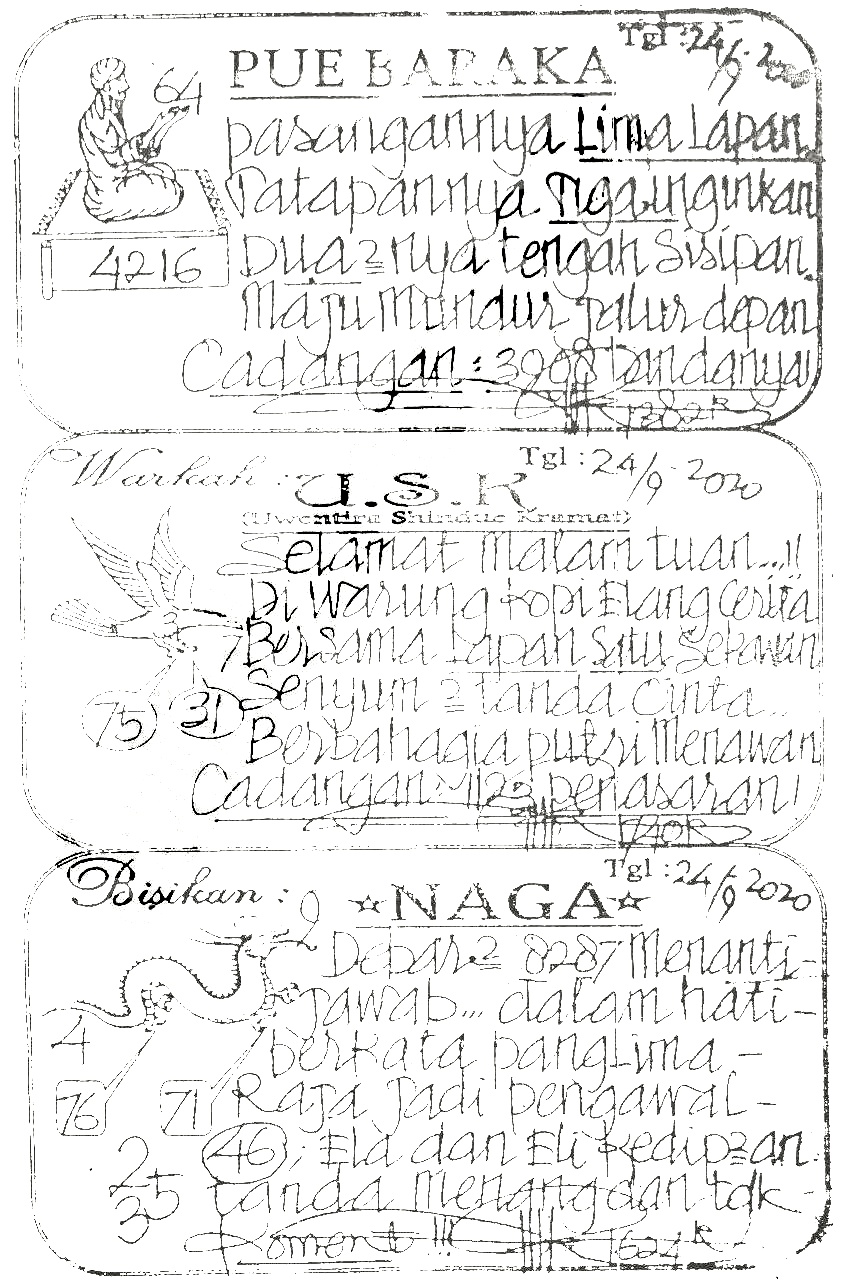 PUE BARAKA
Tgl : 24/9-2020
64
4216
pasangannya Lima Lapan
Tatapannya Tiga inginkan
Dua2nya tengah Sisipan.
Maju Mundur jalur depan
Cadangan : 3908 Tandanya!
1382R
Warkah :
U.S.K
Tgl : 24/9-2020
(Uwentira Shinduc Kramat)
Selamat Malam tuan...!!
Di Warung Kopi Elang Cerita
Bersama Lapan Satu Sekawan
Senyum2 tanda Cinta..
Berbahagia putri Menawan
Cadangan : 1123 penasaran!
7
75
31
1740R
Bisikan :
☆NAGA☆
Tgl : 24/9 2020
9
4
76
71
Debar2 8287 Menanti-
jawab... dalam hati-
berkata pangLima -
Raja jadi pengawal -
46; Ela dan Eli Kedip2an.
tanda Menang dan tdk -
Koment !!!
2
5
3
1624R